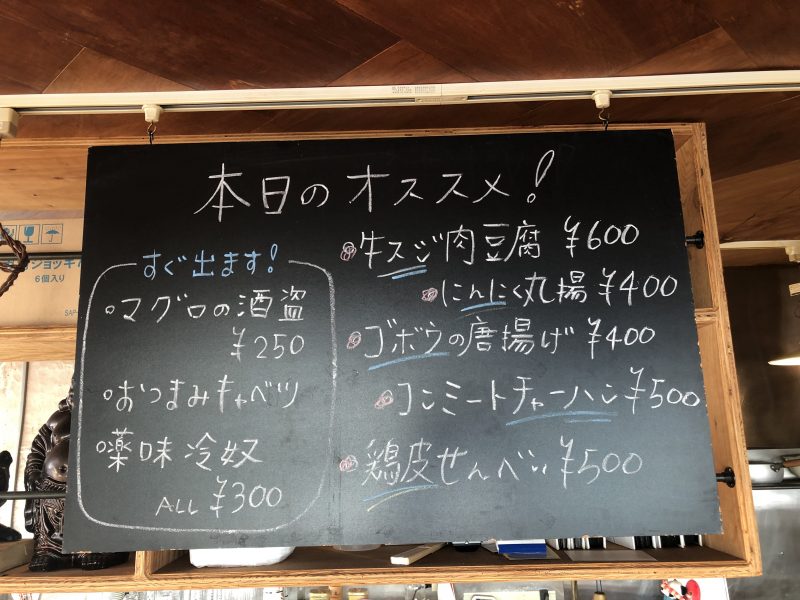 本日のオススメ!
すぐ出ます!
マグロの酒盗
¥250
おつまみキャベツ
薬味冷奴
ALL ¥300
牛スジ肉豆腐 ¥600
にんにく丸揚 ¥400
ゴボウの唐揚げ ¥400
コンミートチャーハン ¥500
鶏皮せんべい ¥500
ジョッキ
6個入り